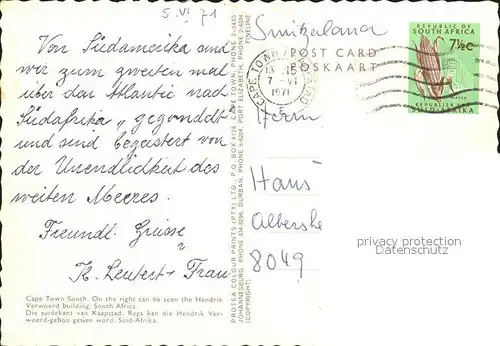 5. VI 71
Switzerland
REPUBLIC OF
SOUTH AFRICA
7½c
REPUBLIEK VAN
SUID-AFRIKA
POST CARD
POSKAART
CAPE TOWN
13 15
7 VI
1971
Von Südamerika sind
wir zum zweiten mal
über den Atlantic nach
Südafrika „gegondelt
und sind begeistert von
der Unendlichkeit des
weiten Meeres.
Freundl. Grüsse
K. Leutert + Frau
Herrn
Hans
8049
privacy protection
Datenschutz
Cape Town-South. On the right can be seen the Hendrik
Verwoerd building. South Africa.
Die suidekant van Kaapstad. Regs kan die Hendrik Ver-
woerd-gebou gesien word. Suid-Afrika.
PROTEA COLOUR PRINTS (PTY) LTD., P.O. BOX 4126, CAPE TOWN, PHONE
JOHANNESBURG, PHONE DURBAN, PHONE PORT ELIZABETH, PHONE
(COPYRIGHT)